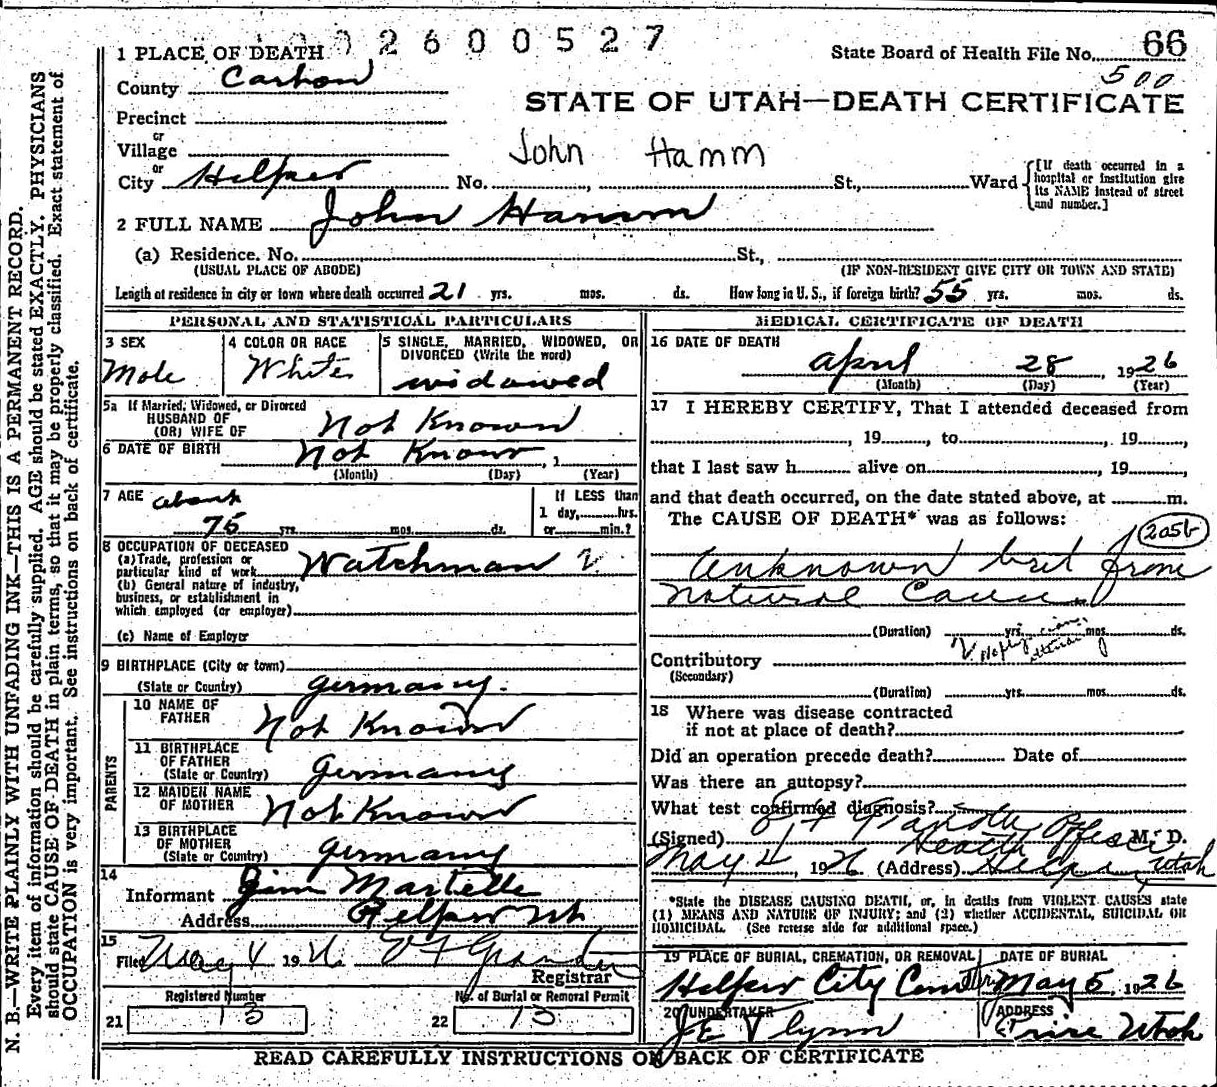 002600527
1 PLACE OF DEATH
State Board of Health File No. 66
500
County Carbon
STATE OF UTAH—DEATH CERTIFICATE
Precinct
or
Village
John Hamm
or
City Helper No. , St., Ward
[If death occurred in a hospital or institution give its NAME instead of street and number.]
2 FULL NAME John Hamm
(a) Residence. No. St.,
(USUAL PLACE OF ABODE) (IF NON-RESIDENT GIVE CITY OR TOWN AND STATE)
Length of residence in city or town where death occurred 21 yrs. mos. ds. How long in U. S., if foreign birth? 55 yrs. mos. ds.
PERSONAL AND STATISTICAL PARTICULARS
3 SEX
Male
4 COLOR OR RACE
White
5 SINGLE, MARRIED, WIDOWED, OR
DIVORCED (Write the word)
widowed
5a If Married, Widowed, or Divorced
HUSBAND OF
(OR) WIFE OF Not Known
6 DATE OF BIRTH Not Known , 1
(Month) (Day) (Year)
7 AGE about
75 yrs. mos. ds.
If LESS than
1 day, hrs.
or min.?
8 OCCUPATION OF DECEASED
(a) Trade, profession or
particular kind of work Watchman
(b) General nature of industry,
business, or establishment in
which employed (or employer)
(c) Name of Employer
9 BIRTHPLACE (City or town)
(State or Country) Germany.
PARENTS
10 NAME OF
FATHER Not Known
11 BIRTHPLACE
OF FATHER
(State or Country) Germany
12 MAIDEN NAME
OF MOTHER Not Known
13 BIRTHPLACE
OF MOTHER
(State or Country) Germany
14
Informant Jim Martelle
Address Helper Ut
15
Filed May 4 1926
Registrar
Registered Number
21 13
No. of Burial or Removal Permit
22 13
MEDICAL CERTIFICATE OF DEATH
16 DATE OF DEATH
April 28 , 1926
(Month) (Day) (Year)
17 I HEREBY CERTIFY, That I attended deceased from
, 19 , to , 19 ,
that I last saw h alive on , 19
and that death occurred, on the date stated above, at m.
The CAUSE OF DEATH* was as follows:
205b
Unknown but from
Natural Cause.
(Duration) yrs. mos. ds.
Contributory
(Secondary)
(Duration) yrs. mos. ds.
18 Where was disease contracted
if not at place of death?
Did an operation precede death? Date of
Was there an autopsy?
What test confirmed diagnosis?
(Signed) Health Officer M. D.
May 4, 1926 (Address) Helper, Utah
*State the DISEASE CAUSING DEATH, or, in deaths from VIOLENT CAUSES state
(1) MEANS AND NATURE OF INJURY; and (2) whether ACCIDENTAL, SUICIDAL OR
HOMICIDAL. (See reverse side for additional space.)
19 PLACE OF BURIAL, CREMATION, OR REMOVAL
Helper City
DATE OF BURIAL
May 5, 1926
20 UNDERTAKER
J E Flynn
ADDRESS
Price Utah
READ CAREFULLY INSTRUCTIONS ON BACK OF CERTIFICATE
N. B.—WRITE PLAINLY WITH UNFADING INK—THIS IS A PERMANENT RECORD.
Every item of information should be carefully supplied. AGE should be stated EXACTLY. PHYSICIANS
should state CAUSE OF DEATH in plain terms, so that it may be properly classified. Exact statement of
OCCUPATION is very important. See instructions on back of certificate.